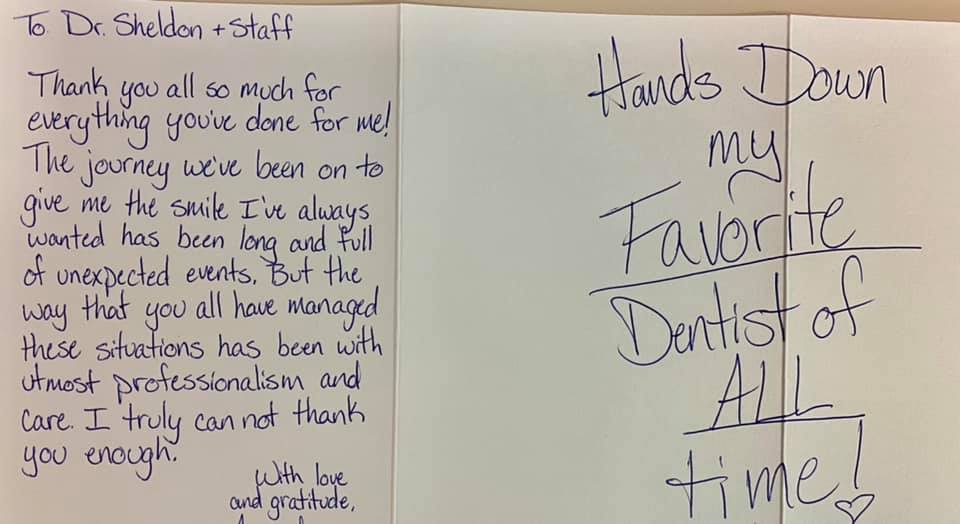 To Dr. Sheldon + Staff
Thank you all so much for
everything you've done for me!
The journey we've been on to
give me the smile I've always
wanted has been long and full
of unexpected events. But the
way that you all have managed
these situations has been with
utmost professionalism and
care. I truly can not thank
you enough.
With love
and gratitude,
Hands Down
my
Favorite
Dentist of
ALL
time!